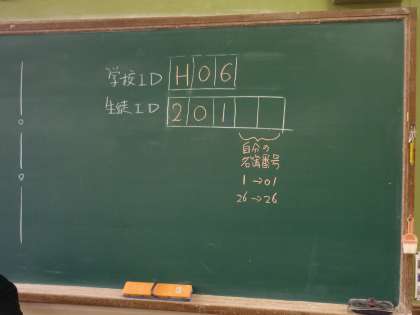 学校ID H06
生徒ID 201
自分の
名簿番号
1→01
26→26